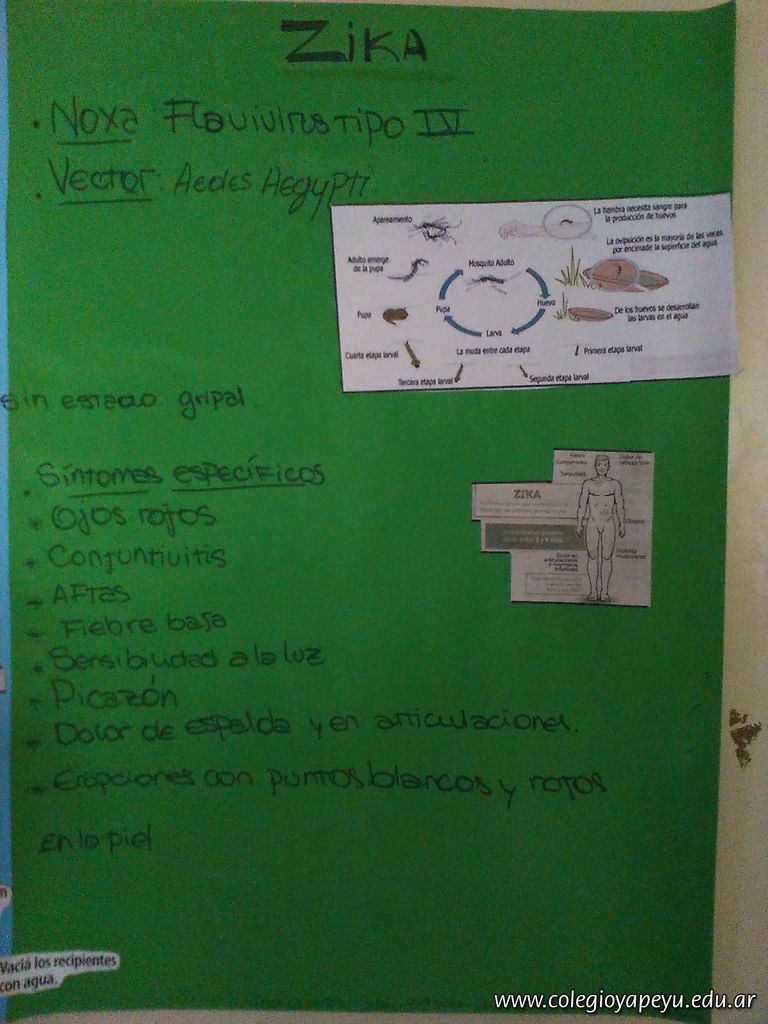 ZiKA
• Noxa Flavivirus tipo IV
• Vector: Aedes Aegypti.
Apareamiento
La hembra necesita sangre para
la producción de huevos
Adulto emerge
de la pupa
Mosquito Adulto
La ovipsición es la mayoría de las veces
por encimade la superficie del agua
Pupa
Pupa
Huevo
De los huevos se desarrollan
las larvas en el agua
Larva
Cuarta etapa larval
La muda entre cada etapa
Primera etapa larval
Tercera etapa larval
Segunda etapa larval
sin estado gripal.
• Síntomas específicos
Ojos rojos
Conjuntivitis
- AFTAS
- Fiebre baja
• Sensibilidad a la luz
- Picazón
- Dolor de espalda y en articulaciones.
- Erupciones con puntos blancos y rojos
en la piel
ZIKA
Vaciá los recipientes
con agua.
www.colegioyapeyu.edu.ar